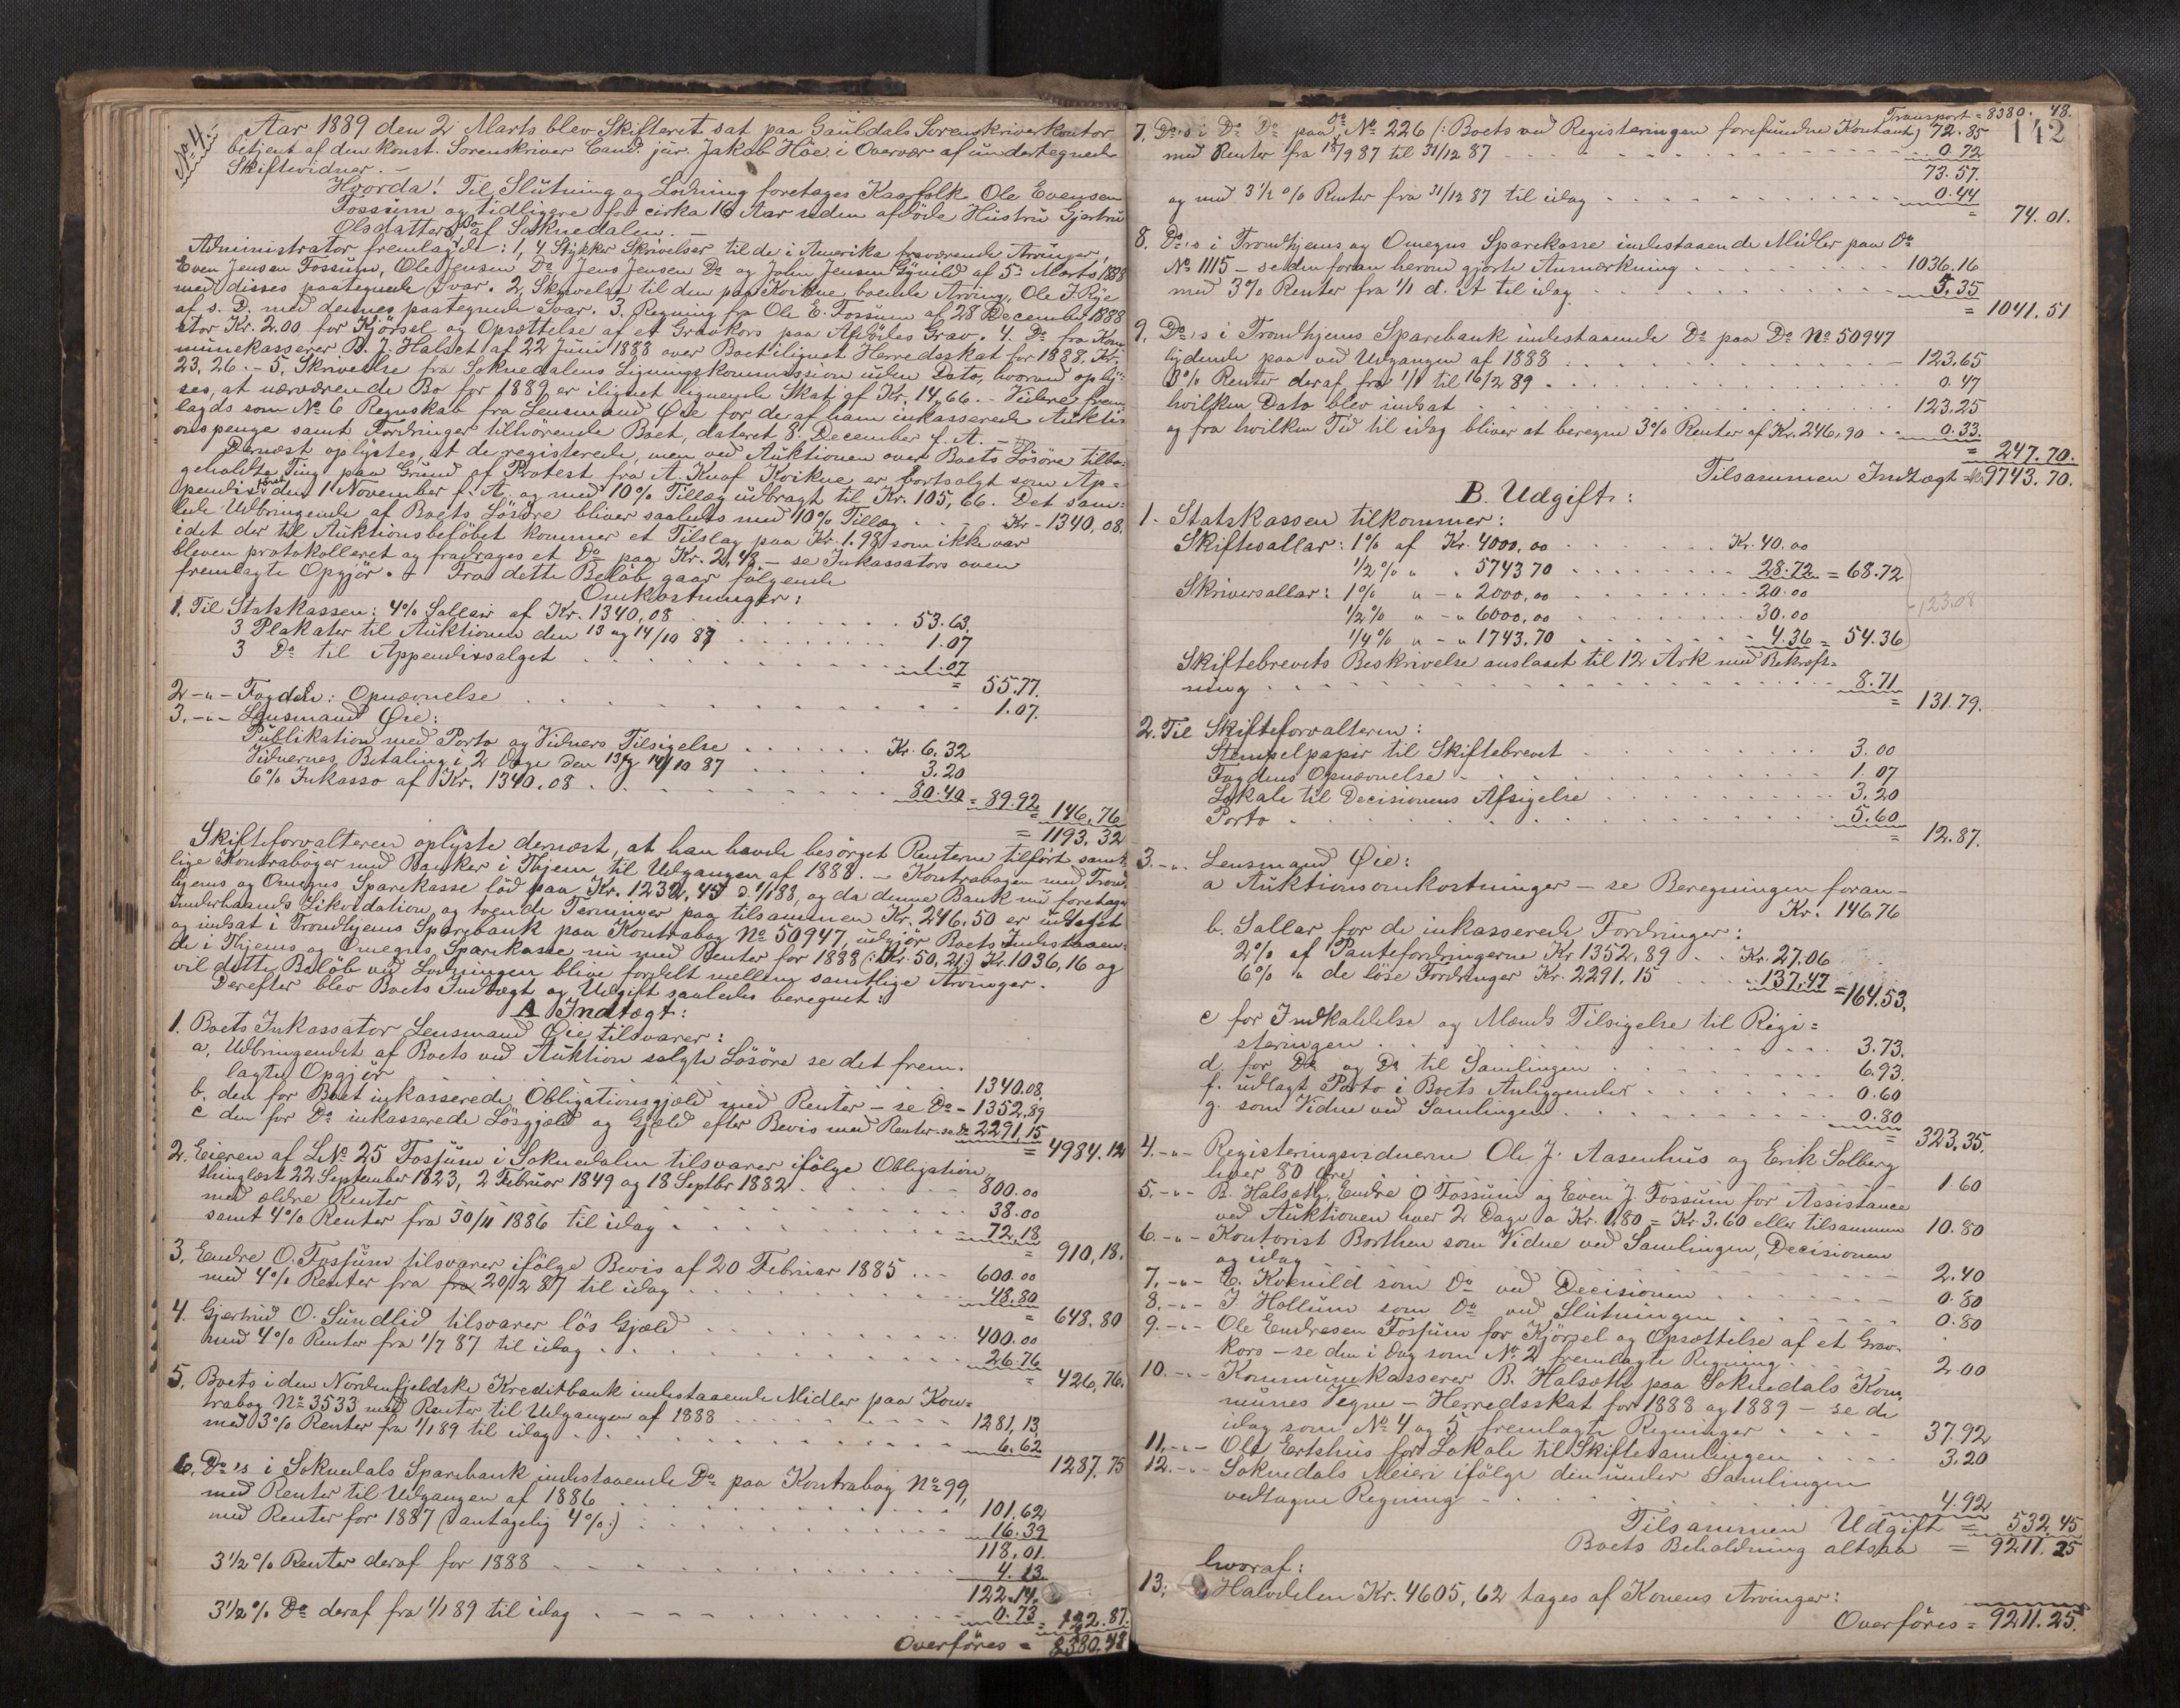 No 4.
Aar 1889 den 2 Marts blev Skifteret sat paa Gauldals Sorenskriverkontor
betjent af den konst. Sorenskriver Cand. jur. Jakob Höe i Overvær af undertegnede
Skiftevidner. —
Hvorda! Til Slutning og Lodning foretages Kaarfolk Ole Evensen
Fossum og tidligere for cirka 16 Aar siden afdöde Hustru Gjertru
Olsdatters Bo af Soknedalen. —
Administrator fremlagde: 1, 4 Stykker Skrivelser til de i Amerika fraværende Arvinger,
Even Jensen Fossum, Ole Jensen Do Jens Jensen Do og John Jensen Gynild af 5. Marts 1888
med disses paategnede Svar. 2, Skrivelse til den paa Koikne boende Arving, Ole J. Rye
af s. D. med dennes paategnede Svar. 3. Regning fra Ole E. Fossum af 28 December 1888
stor Kr. 2.00 for Kjörsel og Opsættelse af et Gravkors paa Afdödes Grav. 4. Do fra Kom
munekasserer B. J. Halset af 22 Juni 1888 over Boet ilignet Herredsskat for 1888, Kr.
23,26. – 5, Skrivelse fra Soknedalens Ligningskommission uden Dato, hvorved oply-
ses, at nærværende Bo for 1889 er ilignet lignende Skat af Kr. 14,66. – Videre frem
lagds som No 6 Regnskab fra Lensmand Øie for de af ham inkasserede Aukti-
onspenge samt Fordringer tilhörende Boet, dateret 8. December f. A. —
Dernæst oplystes, at de registerede, men ved Auktionen over Boets Lösöre tilba-
geholdte Ting paa Grund af Protest fra A. Knaf Koikne er bortsolgt som Ap-
pendix den 1 November f. A. og med 10% Tillæg udbragt til Kr. 105,66. Det sam-
lede Udbringende af Boets Lösöre bliver saaledes med 10% Tillæg . . . Kr - 1340,08.
idet der til Auktionsbelöbet kommer et Tilslag paa Kr. 1.98 som ikke var
bleven protokolleret og fradrages et Do paa Kr. 21,43. – se Inkassators oven
fremlagte Opgjör. + Fra dette Belöb gaar fölgende
Omkostninger:
1. Til Statskassen: 4% Sallair af Kr. 1340,08 . . . 53.63.
3 Plakater til Auktionen den 13 og 14/10 87 . . . 1.07
3 Do til Appendixsalget . . . 1.07
= 55.77.
2 -"- Fogden: Opnævnelse . . . 1.07.
3. -"- Lensmand Øie:
Publikation med Porto og Vidners Tilsigelse . . . Kr. 6.32
Vidnernes Betaling i 2 Dage den 13 og 14/10 87 . . . 3.20
6% Inkasso af Kr. 1340.08 . . . 80.40 = 89.92 = 146,76
= 1193,32
Skifteforvalteren oplyste dernæst, at han havde besörget Renterne tilfört samt-
lige Kontraböger med Banker i Thjem til Udgangen af 1888. – Kontrabogen med Trond
hjems og Omegns Sparekasse löd paa Kr. 1232,45 1/1 88, og da denne Bank nu foretager
underhaands Likvidation, og tvende Terminer paa tilsammen Kr. 246,50 er udtaget
og indsat i Trondhjems Sparebank paa Kontrabog No 50947, udgjör Boets Indestaaen-
de i Thjems og Omegns Sparekasse nu med Renter for 1888 (: Kr. 50,21:) Kr. 1036,16 og
vil dette Belöb ved Lodningen blive fordelt mellem samtlige Arvinger.
Derefter blev Boets Indtægt og Udgift saaledes beregnet:
A Indtægt:
1. Boets Inkassator Lensmand Øie tilsvarer:
a, Udbringendet af Boets ved Auktion solgte Lösöre se det frem-
lagte Opgjör . . . 1340.08.
b. den for Boet inkasserede Obligationsgjæld med Renter – se Do - 1352,89
c den for Do inkasserede Lösgjæld og Gjæld efter Bevis med Renter se Do 2291,15
= 4984.12
2. Eieren af LNo 25 Fossum i Soknedalen tilsvarer ifölge Obligation
thinglæst 22 September 1823, 2 Februar 1849 og 18 Septbr 1882 . . . 800.00
med ældre Renter . . . 38.00
samt 4% Renter fra 30/11 1886 til idag . . . 72,18
= 910,18.
3, Endre O. Fossum tilsvarer ifölge Bevis af 20 Februar 1885 . . . 600.00
med 4% Renter fra fra 20/2 87 til idag . . . 48.80
= 648.80
4. Gjertrud O. Sundlid tilsvarer lös Gjæld . . . 400.00
med 4% Renter fra 1/7 87 til idag . . . 26.76
= 426,76.
5, Boets i den Nordenfjeldske Kreditbank indestaaende Midler paa Kon-
trabog No 3533 med Renter til Udgangen af 1888 . . . 1281,13,
med 3% Renter fra 1/1 89 til idag . . . 6.62
1287.75
6, Do's i Soknedals Sparebank indestaaende Do paa Kontrabog No 99,
med Renter til Udgangen af 1886 . . . 101.62
med Renter for 1887 (antagelig 4%:) . . . 16.39
118,01.
3½% Renter deraf for 1888 . . . 4.13.
122.14.
3½% Do deraf fra 1/1 89 til idag . . . 0.73 = 122.87.
Overföres = 8380,48
Transport = 8380. 48.
142
7. Do's i Do Do paa Do No 226 (: Boets ved Registeringen forefundne Kontant) 72.85
med Renter fra 13/9 87 til 31/12 87 . . . 0.72
73.57.
og med 3½% Renter fra 31/12 87 til idag . . . 0.44
= 74.01.
8. Do's i Trondhjems og Omegns Sparekasse indestaaende Midler paa Do
No 1115 – se den foran herom gjorte Anmærkning . . . 1036.16
med 3% Renter fra 1/1 d. A til idag . . . 5.35
= 1041.51
9. Do's i Trondhjems Sparebank indestaaende Do paa Do No 50947
lydende paa ved Udgangen af 1888 . . . 123.65
3% Renter deraf fra 1/1 til 16/2 89 . . . 0.47
hvilken Dato blev indsat . . . 123.25
og fra hvilken Tid til idag bliver at beregne 3% Renter af Kr. 246,90 . . 0.33.
= 247.70.
Tilsammen Indtægt = Kr 9743.70.
B. Udgift:
1. Statskassen tilkommer:
Skiftesallar: 1% af Kr. 4000,00 . . . Kr. 40.00
½% " . 5743 70 . . . 28.72 = 68.72
Skriversallar: 1% " - " 2000,00 . . . 20.00
½% " - " 6000,00 . . . 30.00
¼% " - " 1743,70 . . . 4.36 = 54.36
123.08
Skiftebrevets Beskrivelse anslaaet til 12 Ark med Bekræft-
ning . . . 8.71
= 131.79.
2. Til Skifteforvalteren:
Stempelpapir til Skiftebrevet . . . 3.00
Fogdens Opnævnelse . . . 1.07
Lokale til Decisionens Afsigelse . . . 3.20
Porto . . . 5.60
= 12.87.
3. -"- Lensmand Øie:
a Auktionsomkostninger – se Beregningen foran –
Kr. 146 76
b. Sallar for de inkasserede Fordringer:
2% af Pantefordringerne Kr 1352.89 . . Kr. 27.06
6% " de löse Fordringer Kr. 2291.15 . . . 137,47 = 164.53,
c for Indkaldelse og Mænds Tilsigelse til Regi-
steringen . . . 3.73.
d. for Do og Do til Samlingen . . . 6.93.
f. udlagt Porto i Boets Anliggender . . . 0.60
g. som Vidne ved Samlingen . . . 0.80
= 323,35.
4. -"- Registeringsvidnerne Ole J. Aasenhus og Erik Solberg
hver 80 Øre . . . 1.60
5. -"- B. Halsæth, Endre O Fossum og Even J. Fossum for Assistance
ved Auktionen hver 2 Dage a Kr. 1,80 = Kr 3.60 eller tilsammen 10.80
6. -"- Kontorist Borthen som Vidne ved Samlingen, Decisionen
og idag . . . 2.40
7. -"- E. Kvenild som Do ved Decisionen . . . 0.80
8. -"- I. Hollum som Do ved Slutningen . . . 0.80
9. -"- Ole Endresen Fossum for Kjörsel og Opsættelse af et Grav-
kors – se den i dag som No 2 fremlagte Regning . . . 2.00
10. -"- Kommunekasserer B. Halsæth paa Soknedals Kom
munes Vegne – Herredsskat for 1888 og 1889 – se de
idag som No 4 og 5 fremlagte Regninger . . . 37.92
11. -"- Ole Ertshus for Lokale til Skiftesamlingen . . . 3.20
12. -"- Soknedals Meieri ifölge den under Samlingen
vedtagne Regning . . . 4.92
Tilsammen Udgift = 532.45
Boets Beholdning altsaa = 9211.25
hvoraf:
13. Halvdelen Kr. 4605,62 tages af Konens Arvinger:
Overföres = 9211.25.